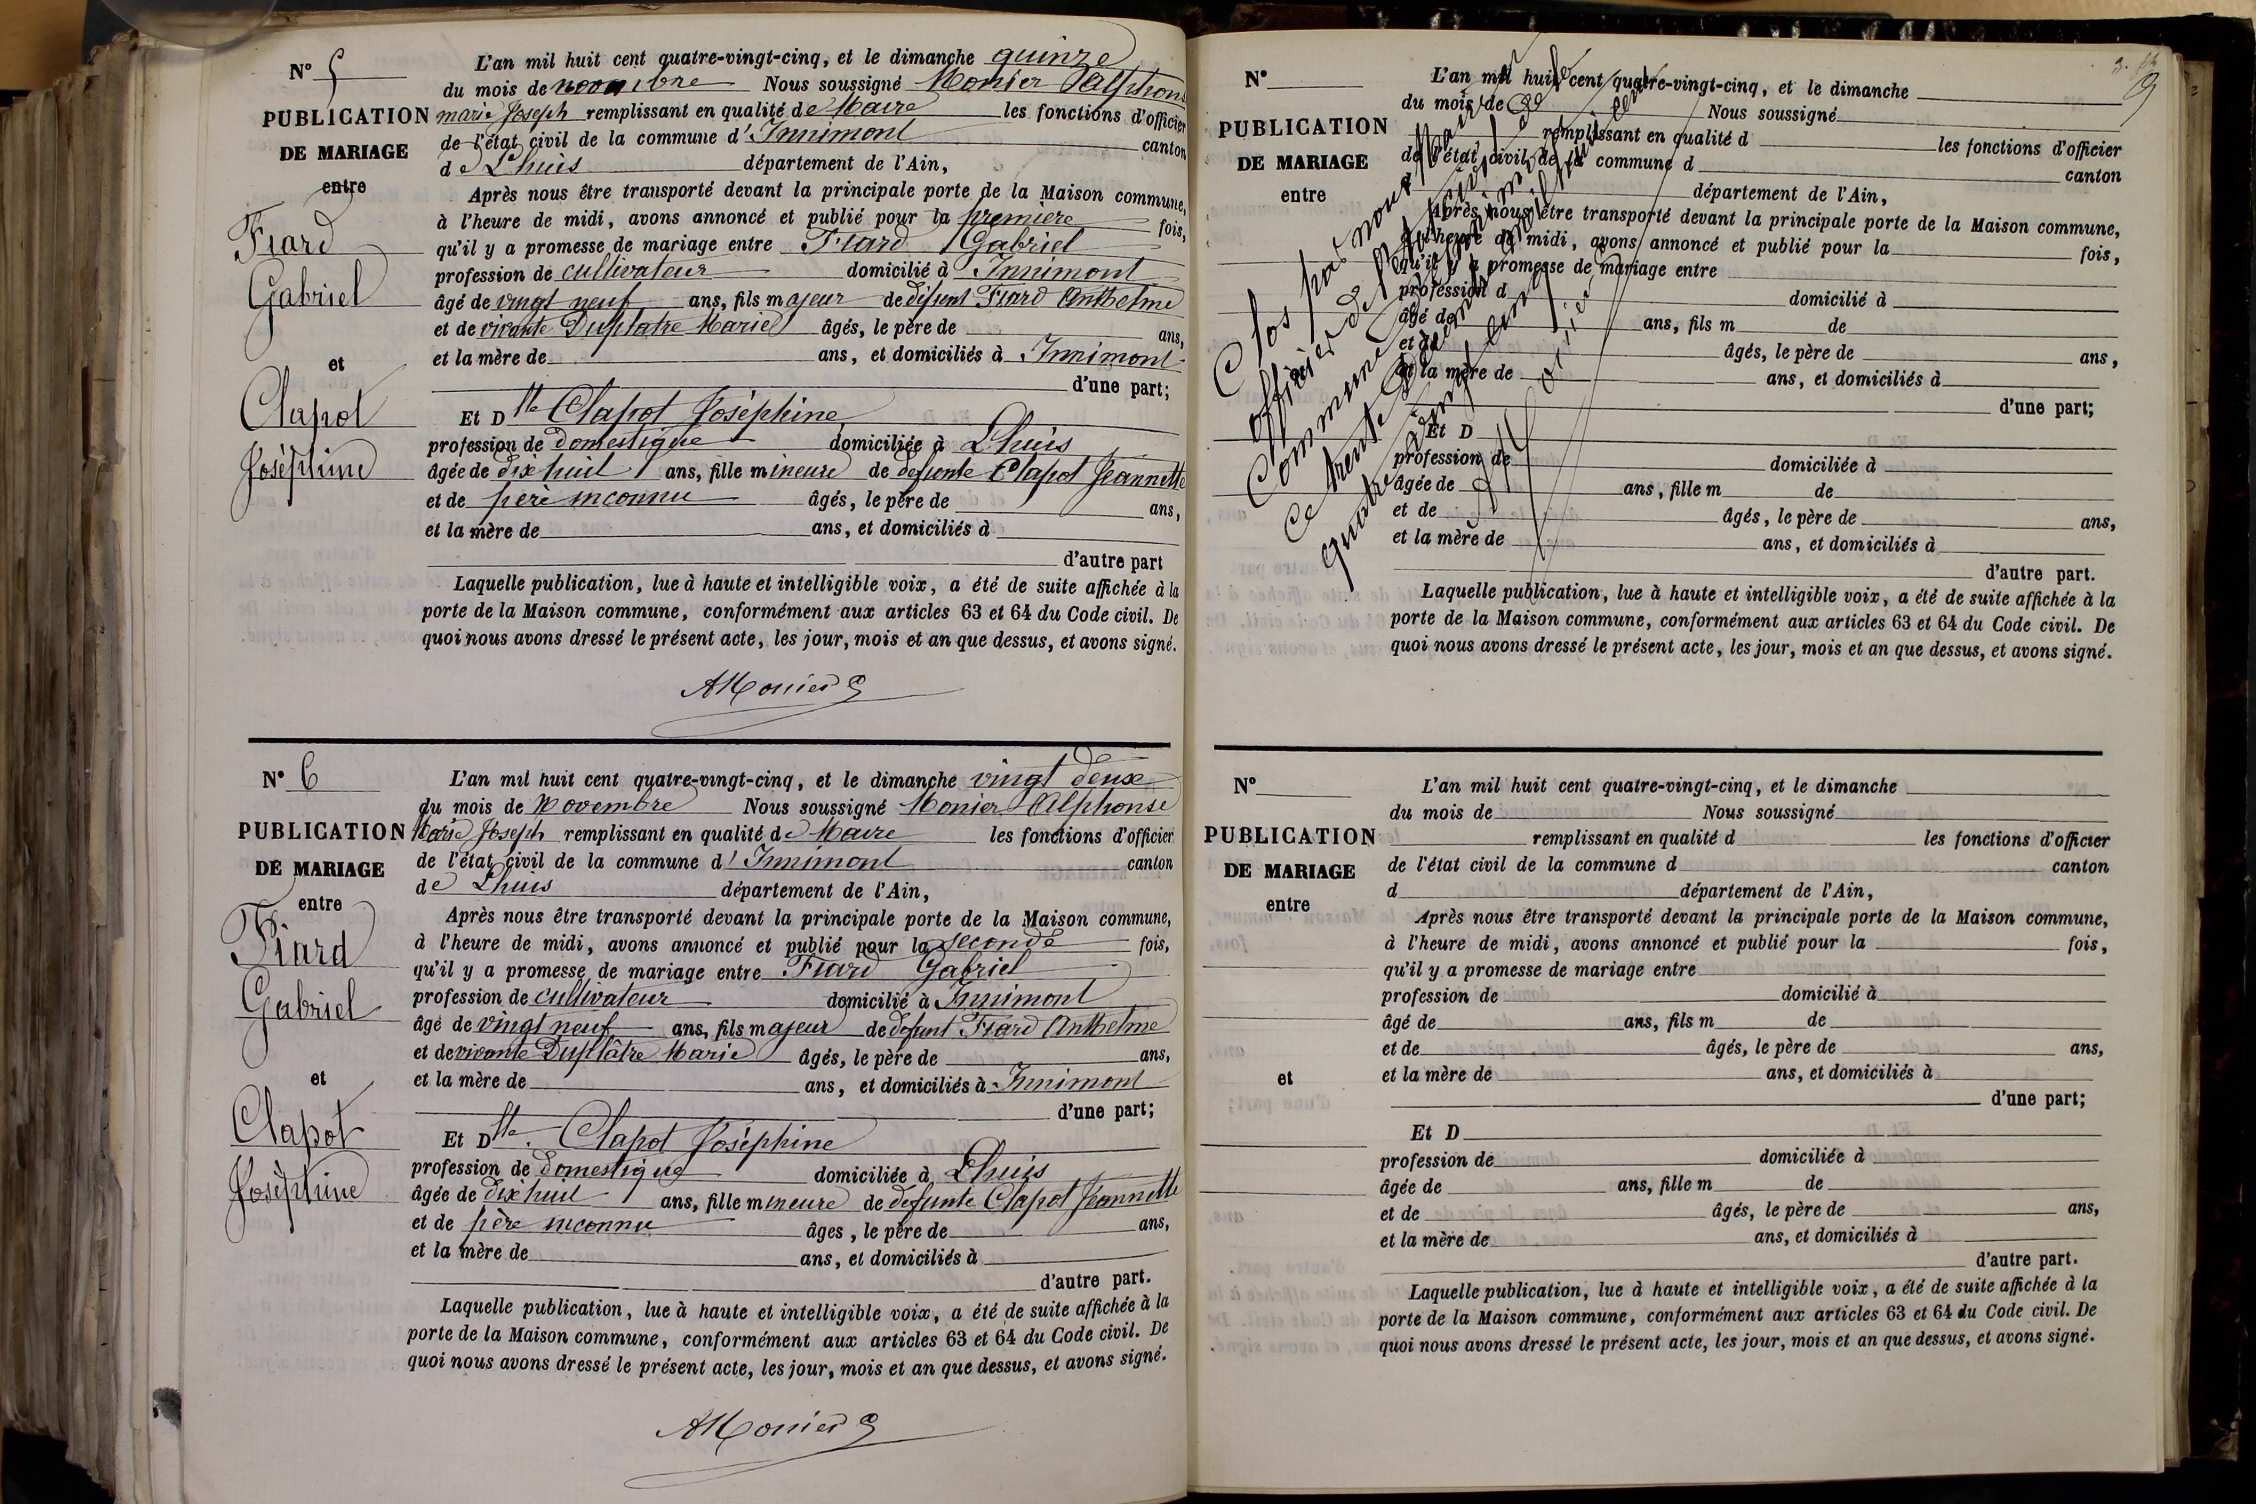 N° 5
PUBLICATION
DE MARIAGE
entre
Fiard
Gabriel
et
Clapot
Joséphine
L'an mil huit cent quatre-vingt-cinq, et le dimanche quinze
du mois de novembre Nous soussigné Monier Alphonse
marie Joseph remplissant en qualité de Maire les fonctions d'officier
de l'état civil de la commune d'Innimont canton
de Lhuis département de l'Ain,
Après nous être transporté devant la principale porte de la Maison commune,
à l'heure de midi, avons annoncé et publié pour la première fois,
qu'il y a promesse de mariage entre Fiard Gabriel
profession de cultivateur domicilié à Innimont
âgé de vingt neuf ans, fils majeur de défunt Fiard Anthelme
et de vivante Duplatre Marie âgés, le père de ans,
et la mère de ans, et domiciliés à Innimont
d'une part;
Et Dlle Clapot Joséphine
profession de domestique domiciliée à Lhuis
âgée de dix huit ans, fille mineure de defunte Clapot Jeannette
et de père inconnu âgés, le père de ans,
et la mère de ans, et domiciliés à
d'autre part
Laquelle publication, lue à haute et intelligible voix, a été de suite affichée à la
porte de la Maison commune, conformément aux articles 63 et 64 du Code civil. De
quoi nous avons dressé le présent acte, les jour, mois et an que dessus, et avons signé.
AMonier
N° 6
PUBLICATION
DE MARIAGE
entre
Fiard
Gabriel
et
Clapot
Joséphine
L'an mil huit cent quatre-vingt-cinq, et le dimanche vingt deux
du mois de Novembre Nous soussigné Monier Alphonse
Marie Joseph remplissant en qualité de Maire les fonctions d'officier
de l'état civil de la commune d'Innimont canton
de Lhuis département de l'Ain,
Après nous être transporté devant la principale porte de la Maison commune,
à l'heure de midi, avons annoncé et publié pour la seconde fois,
qu'il y a promesse de mariage entre Fiard Gabriel
profession de cultivateur domicilié à Innimont
âgé de vingt neuf ans, fils majeur de defunt Fiard Anthelme
et de vivante Duplâtre Marie âgés, le père de ans,
et la mère de ans, et domiciliés à Innimont
d'une part;
Et Dlle Clapot Joséphine
profession de domestique domiciliée à Lhuis
âgée de dix huit ans, fille mineure de defunte Clapot Jeannette
et de père inconnu âges, le père de ans,
et la mère de ans, et domiciliés à
d'autre part.
Laquelle publication, lue à haute et intelligible voix, a été de suite affichée à la
porte de la Maison commune, conformément aux articles 63 et 64 du Code civil. De
quoi nous avons dressé le présent acte, les jour, mois et an que dessus, et avons signé.
AMonier
N°
PUBLICATION
DE MARIAGE
entre
L'an mil huit cent quatre-vingt-cinq, et le dimanche
du mois de Nous soussigné
remplissant en qualité d les fonctions d'officier
de l'état civil de la commune d canton
d département de l'Ain,
Après nous être transporté devant la principale porte de la Maison commune,
à l'heure de midi, avons annoncé et publié pour la fois,
qu'il y a promesse de mariage entre
profession d domicilié à
âgé de ans, fils m de
et de âgés, le père de ans,
et la mère de ans, et domiciliés à
d'une part;
Et D
profession de domiciliée à
âgée de ans, fille m de
et de âgés, le père de ans,
et la mère de ans, et domiciliés à
d'autre part.
Laquelle publication, lue à haute et intelligible voix, a été de suite affichée à la
porte de la Maison commune, conformément aux articles 63 et 64 du Code civil. De
quoi nous avons dressé le présent acte, les jour, mois et an que dessus, et avons signé.
Clos par nous Maire
officier de l'état civil de la
Commune d'Innimont
ce trente décembre mil huit cent
quatre vingt cinq
AMonier
N°
PUBLICATION
DE MARIAGE
entre
et
L'an mil huit cent quatre-vingt-cinq, et le dimanche
du mois de Nous soussigné
remplissant en qualité d les fonctions d'officier
de l'état civil de la commune d canton
d département de l'Ain,
Après nous être transporté devant la principale porte de la Maison commune,
à l'heure de midi, avons annoncé et publié pour la fois,
qu'il y a promesse de mariage entre
profession de domicilié à
âgé de ans, fils m de
et de âgés, le père de ans,
et la mère de ans, et domiciliés à
d'une part;
Et D
profession de domiciliée à
âgée de ans, fille m de
et de âgés, le père de ans,
et la mère de ans, et domiciliés à
d'autre part.
Laquelle publication, lue à haute et intelligible voix, a été de suite affichée à la
porte de la Maison commune, conformément aux articles 63 et 64 du Code civil. De
quoi nous avons dressé le présent acte, les jour, mois et an que dessus, et avons signé.